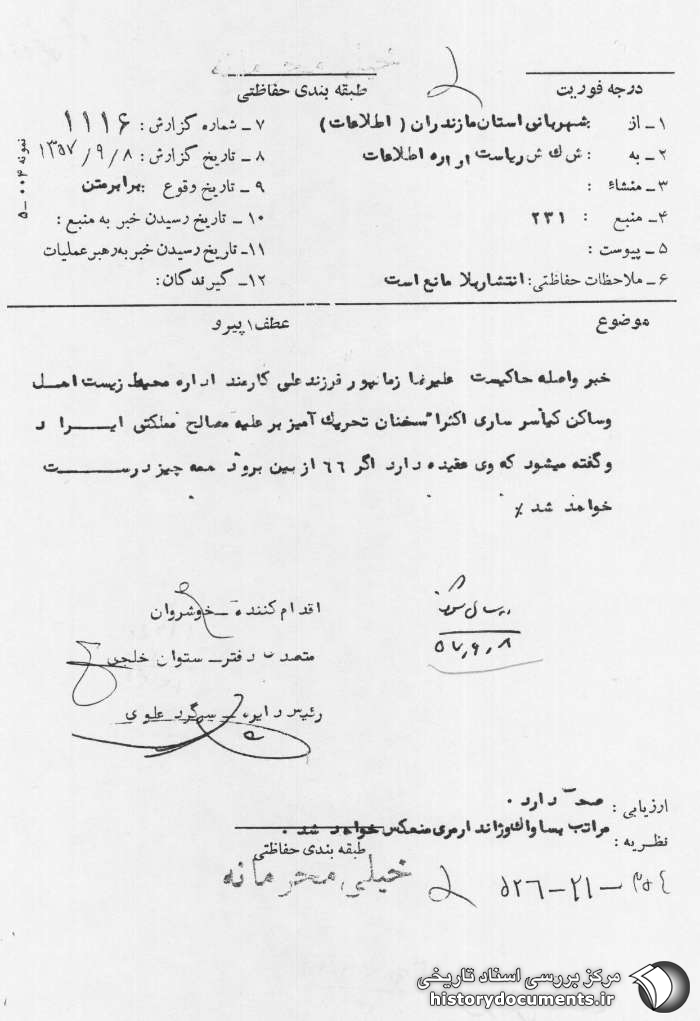 درجه فوریت
طبقه بندی حفاظتی
۱ـ از : شهربانی استان مازندران ( اطلاعات )
۲ـ به : ش ک ش ریاست اداره اطلاعات
۳ـ منشاء :
۴ـ منبع : ۲۳۱
۵ ـ پیوست :
۶ ـ ملاحظات حفاظتی : انتشار بلا مانع است
۷ ـ شماره گزارش : ۱۱۱۶
۸ ـ تاریخ گزارش : ۱۳۵۷/۹/۸
۹ ـ تاریخ وقوع : برابر متن
۱۰ ـ تاریخ رسیدن خبر به منبع :
۱۱ـ تاریخ رسیدن خبر به رهبر عملیات
۱۲ـ گیرندگان :
نمونه ۰۰۴ ـ ۵
موضوع
عطف / پیرو
خبر واصله حاکیست علیرضا زمانپور فرزند علی کارمند اداره محیط زیست اهل
وساکن کیاسر ساری اکثرا سخنان تحریک آمیز بر علیه مصالح مملکتی ایراد
و گفته میشود که وی عقیده دارد اگر ۶۶ از بین برود همه چیز درست
خواهد شد ٪
اقدام کننده ـ خوشروان
متصدی دفتر ـ ستوان خلجی
رئیس دایره ـ سرگرد علوی
۵۷٫۹٫۸
ارزیابی : صحت دارد .
نظریه : مراتب بساواک وژاندارمری منعکس خواهد شد .
طبقه بندی حفاظتی
خیلی محرمانه
۵۲۶-۲۱-
مرکز بررسی اسناد تاریخی
historydocuments.ir